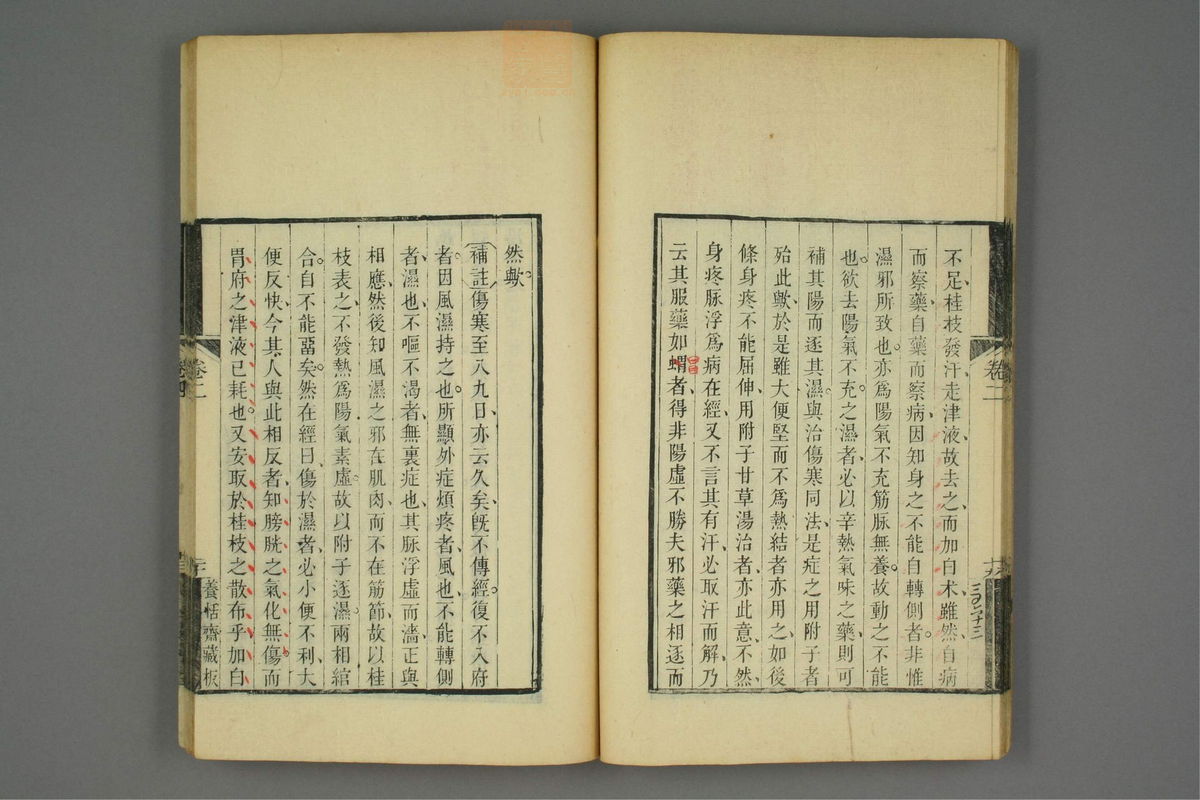 不足桂枝發汗走津液故去之而加白术雖然自病
而察藥自藥而察病因知身之不能自轉側者非惟
濕邪所致也亦爲陽氣不充筋脉無養故動之不能
也欲去陽氣不充之濕者必以辛熱氣味之藥則可
補其陽而逐其濕與治傷寒同法是症之用附子者
殆此歟於是雖大便堅而不爲熱結者亦用之如後
條身疼不能屈伸用附子甘草湯治者亦此意不然
身疼脉浮爲病在經又不言其有汗必取汗而解乃
云其服藥如蝟者得非陽虛不勝夫邪藥之相逐而
卷二
然歟
補註傷寒至八九日亦云久矣旣不傳經復不入府
者因風濕持之也所顯外症煩疼者風也不能轉側
者濕也不嘔不渴者無裏症也其脉浮虛而濇正與
相應然後知風濕之邪在肌肉而不在筋節故以桂
枝表之不發熱爲陽氣素虛故以附子逐濕兩相綰
合自不能畱矣然在經曰傷於濕者必小便不利大
便反快今其人與此相反者知膀胱之氣化無傷而
胃府之津液已耗也又安取於桂枝之散布乎加白
卷二
養恬齋藏板